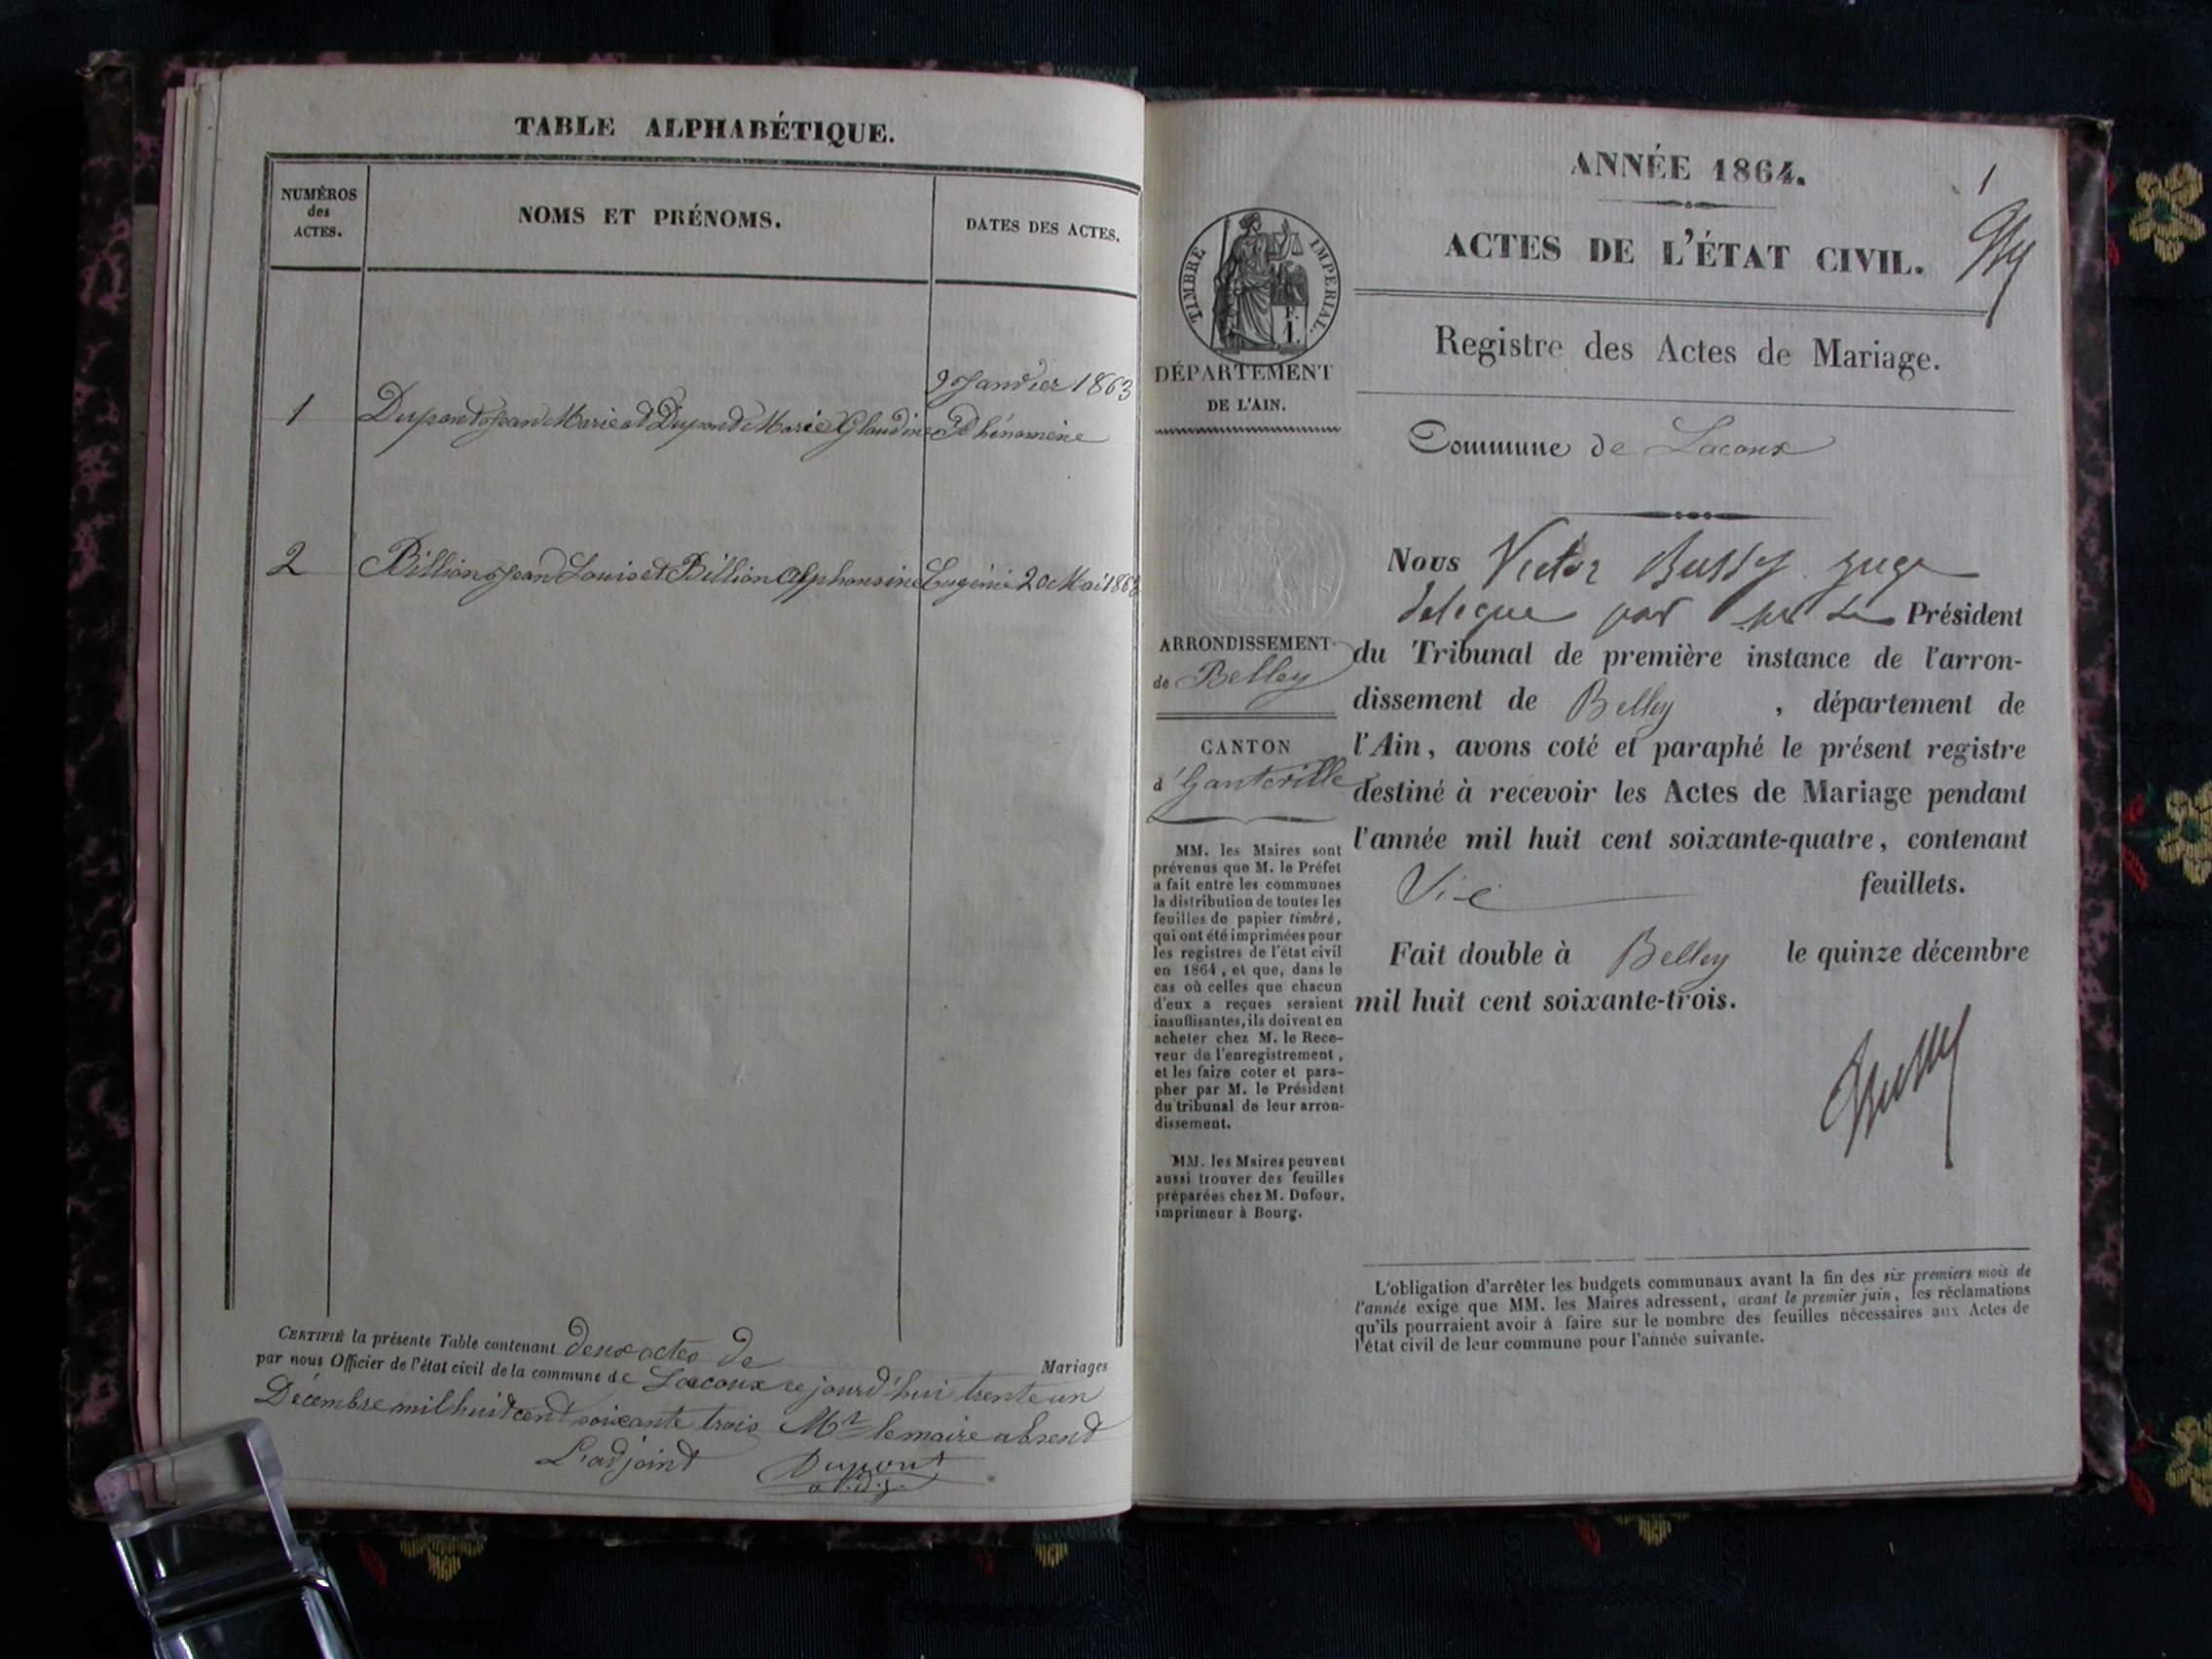 TABLE ALPHABÉTIQUE.
NUMÉROS
des
ACTES.
NOMS ET PRÉNOMS.
DATES DES ACTES.
9 Janvier 1863
1 Dupont Jean Marie et Dupont Marie Glaudine Phénomène
2 Billion Jean Louis et Billion Alphonsine Eugénie 20 Mai 1863
CERTIFIÉ la présente Table contenant deux actes de Mariages
par nous Officier de l'état civil de la commune de Lacoux ce jourd'hui trente un
Décembre mil huit cent soixante trois Mr le maire absend
L'adjoint Dupont
ANNÉE 1864.
1
ACTES DE L'ÉTAT CIVIL.
TIMBRE IMPÉRIAL.
1 F.
DÉPARTEMENT
DE L'AIN.
Registre des Actes de Mariage.
Commune de Lacoux
ARRONDISSEMENT
de Belley
CANTON
d'
MM. les Maires sont
prévenus que M. le Préfet
a fait entre les communes
la distribution de toutes les
feuilles de papier timbré,
qui ont été imprimées pour
les registres de l'état civil
en 1864, et que, dans le
cas où celles que chacun
d'eux a reçues seraient
insuffisantes, ils doivent en
acheter chez M. le Rece-
veur de l'enregistrement,
et les faire coter et para-
pher par M. le Président
du tribunal de leur arron-
dissement.
MM. les Maires peuvent
aussi trouver des feuilles
préparées chez M. Dufour,
imprimeur à Bourg.
Nous Victor Bussy juge
delegue par Mr Le Président
du Tribunal de première instance de l'arron-
dissement de Belley , département de
l'Ain, avons coté et paraphé le présent registre
destiné à recevoir les Actes de Mariage pendant
l'année mil huit cent soixante-quatre, contenant
feuillets.
Fait double à Belley le quinze décembre
mil huit cent soixante-trois.
Bussy
L'obligation d'arrêter les budgets communaux avant la fin des six premiers mois de
l'année exige que MM. les Maires adressent, avant le premier juin, les réclamations
qu'ils pourraient avoir à faire sur le nombre des feuilles nécessaires aux Actes de
l'état civil de leur commune pour l'année suivante.